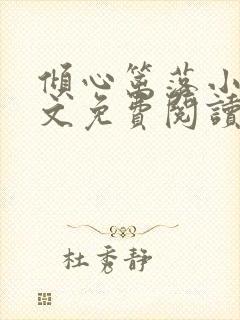 傾心篱落小
文免費閱讀
杜秀靜